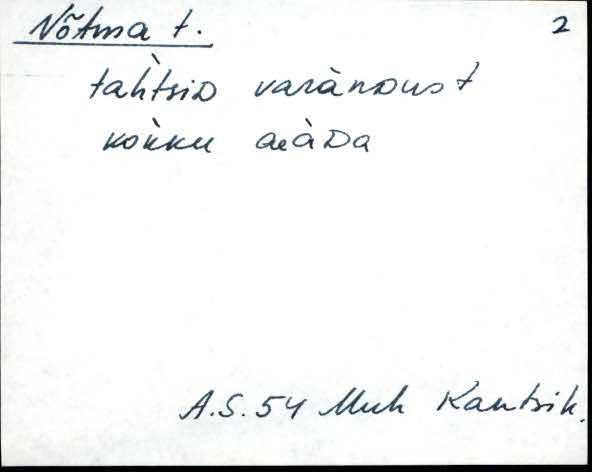 Nõtma t. 2
tahtsiᴅ varànᴅust
kokku aeàᴅa
A.S. 54 Muh Kantsik.